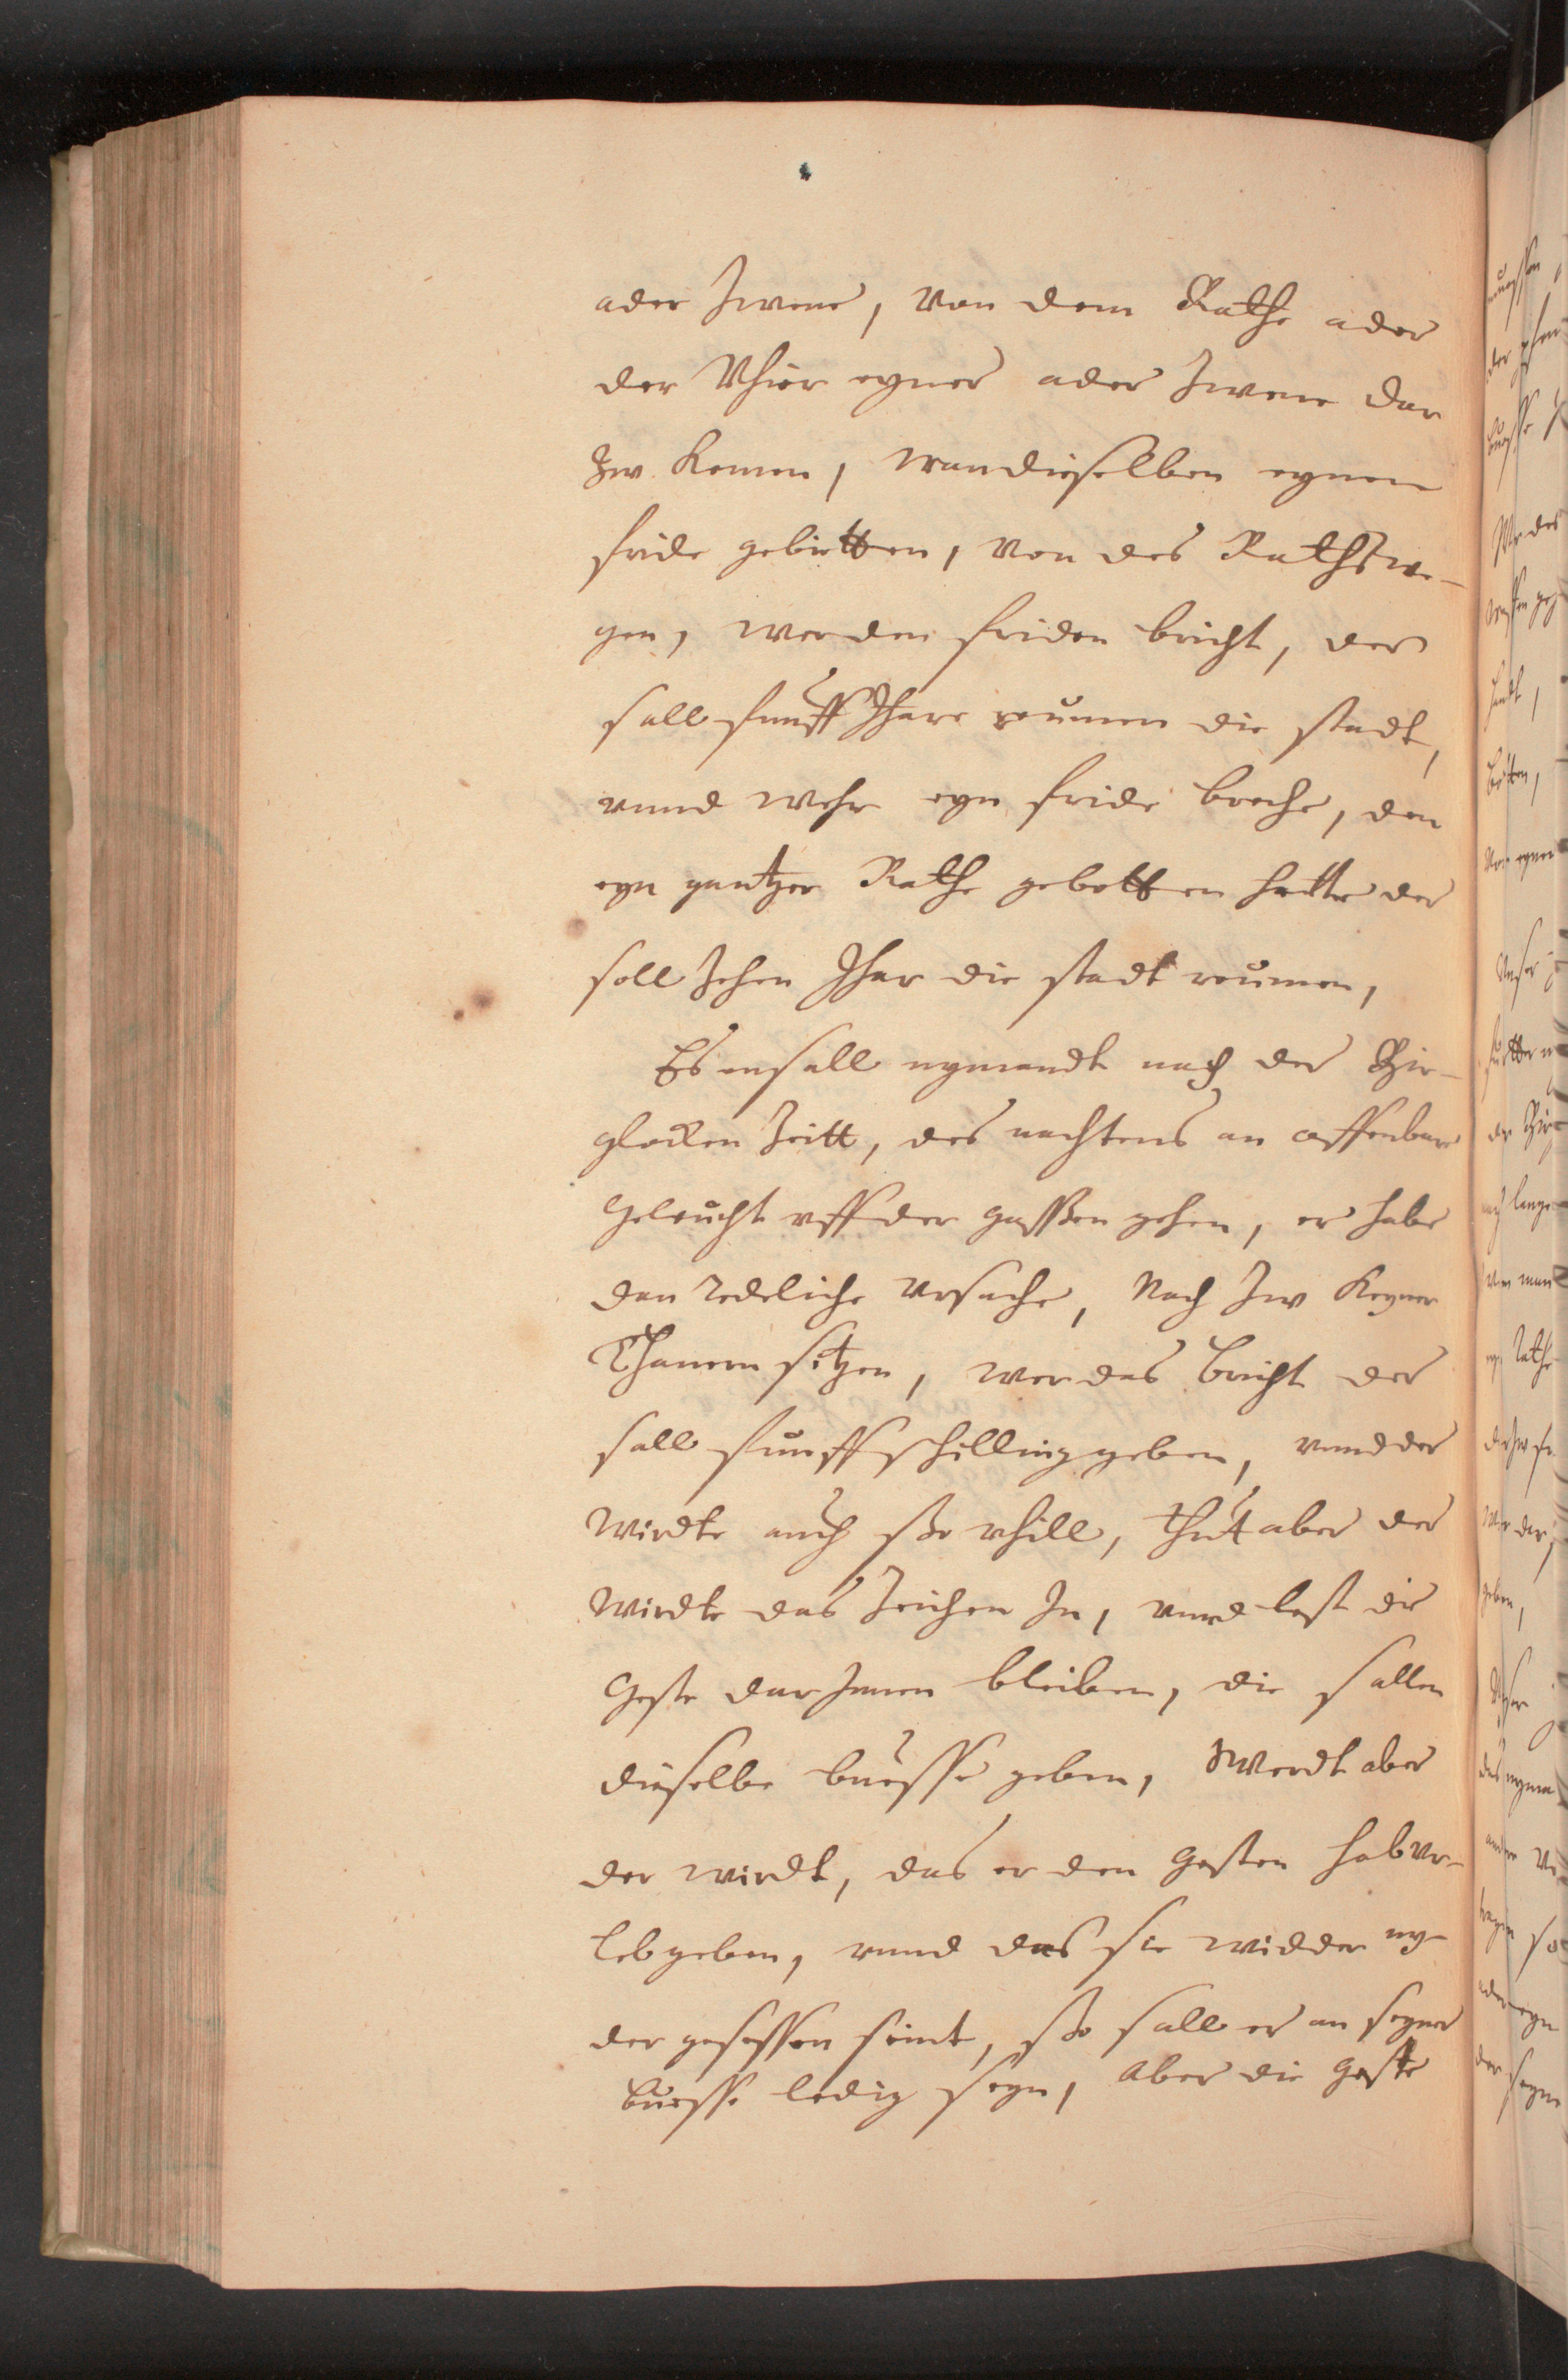 ader Zwene, von dem Rathe ader
der Vhier eyner ader Zwene dar
Zw komen, wan dieselben eynen
fride gebietten, von des Rathswe-
gen, wer den friden bricht, der
sall funff Jhare reumen die stadt,
vnnd wehr eyn fride breche, den
eyn gantzer Rathe gebotten hette der
soll Zehen Jhar die stadt reumen,
Es ensall nymandt nach der Bir-
glocken Zeitt, des nachtens an offenbare
geleucht vff der gassen gehen, er habe
dan redeliche vrsache, Noch Zw keynem
sitzen, wer das bricht der
sall funff schilling geben, vnnd der
wirdte auch sso vhill, thut aber der
wirdte das Zeichen In, vnnd lest die
geste dar Innen bleiben, die sallen
dieselbe buesse geben, Swerdt aber
der wirdt, das er den gesten hab vr-
leb geben, vnnd das sie widder ny-
der gesessen seint, sso sall er an seyner
buesse ledig seyn, Aber die geste